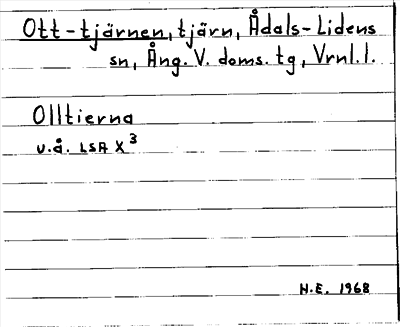 Ott-tjärnen, tjärn, Ådals-Lidens
sn, Ång. V. doms. tg, Vrnl. l.
Olltierna
u.å. LSA X 3
N.E. 1968